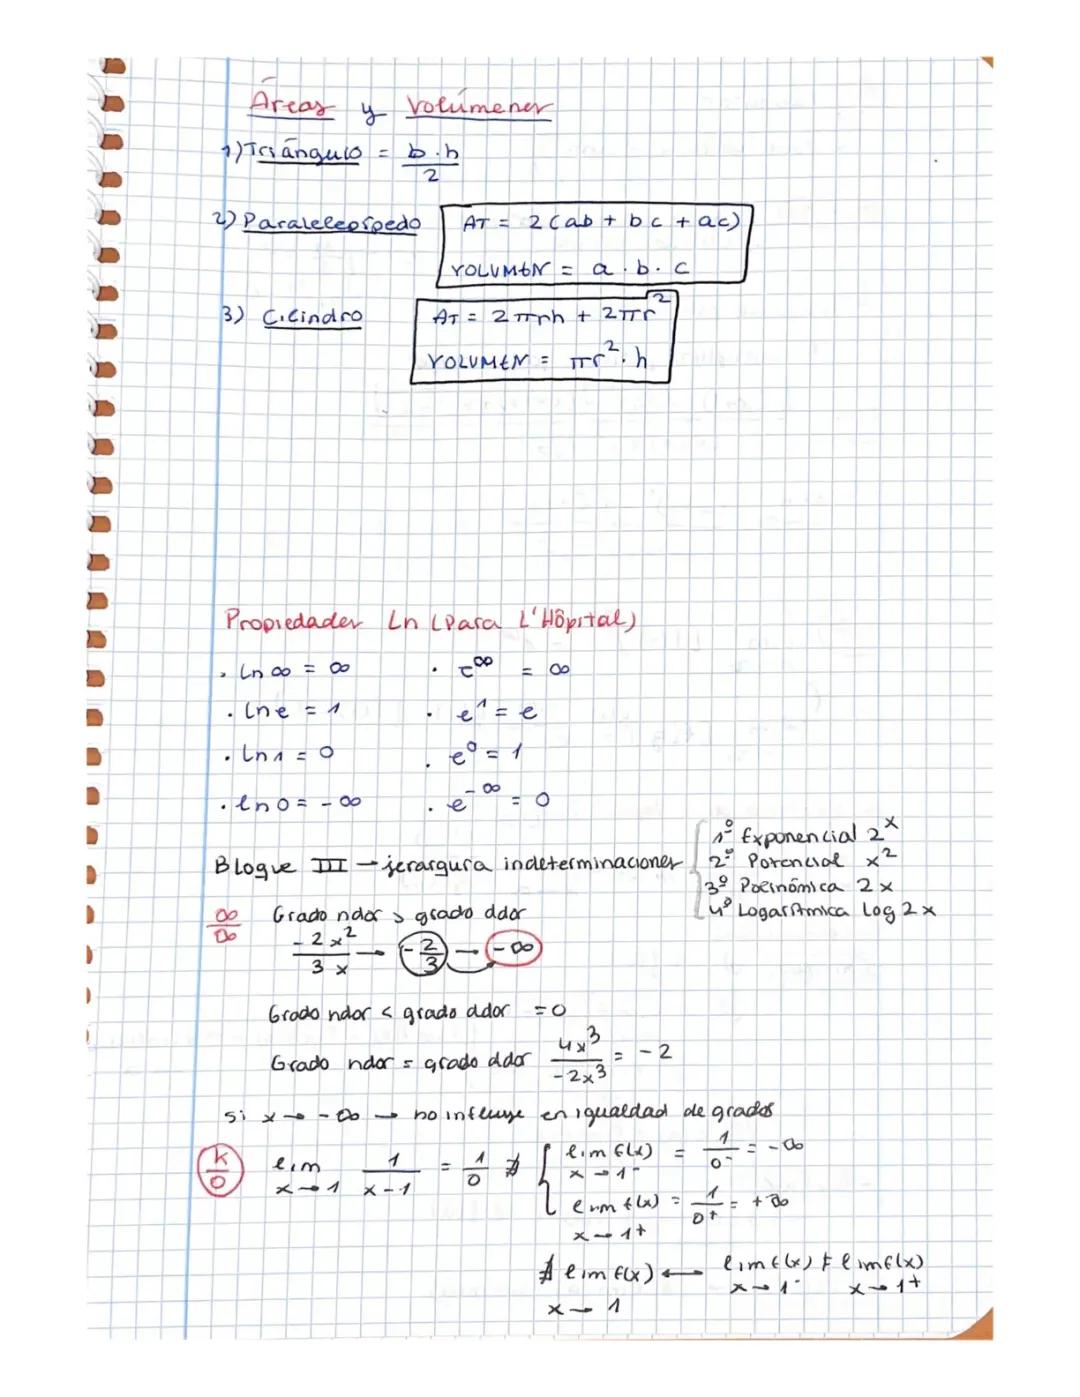 Áreas y volúmenes
1) Triángulo = b·h/2
2) Paralelepípedo AT = 2(ab + bc + ac)
VOLUMEN = a·b·c
3) Cilindro AT = 2πrh + 2πr²
VOLUMEN = πr²·h
Propiedades Ln (Para L'Hôpital)
· Ln ∞ = ∞ · e^∞ = ∞
· Ln e = 1 · e¹ = e
· Ln 1 = 0 · e⁰ = 1
· Ln 0 = -∞ · e^-∞ = 0
Bloque III → jerarquía indeterminaciones
1º Exponencial 2^x
2º Potencial x²
3º Polinómica 2x
4º Logarítmica Log 2x
∞/∞ Grado ndor > grado ddor
-2x²/3x → -2/3 → -∞
Grado ndor < grado ddor = 0
Grado ndor = grado ddor 4x³/-2x³ = -2
Si x → -∞ → no influye en igualdad de grados
k/0 lim x→1 1/x-1 = 1/0 ∄
lim f(x) x→1⁻ = 1/0⁻ = -∞
lim f(x) x→1+ = 1/0+ = +∞
∄ lim f(x) x→1 ← lim f(x) x→1⁻ ≠ lim f(x) x→1+